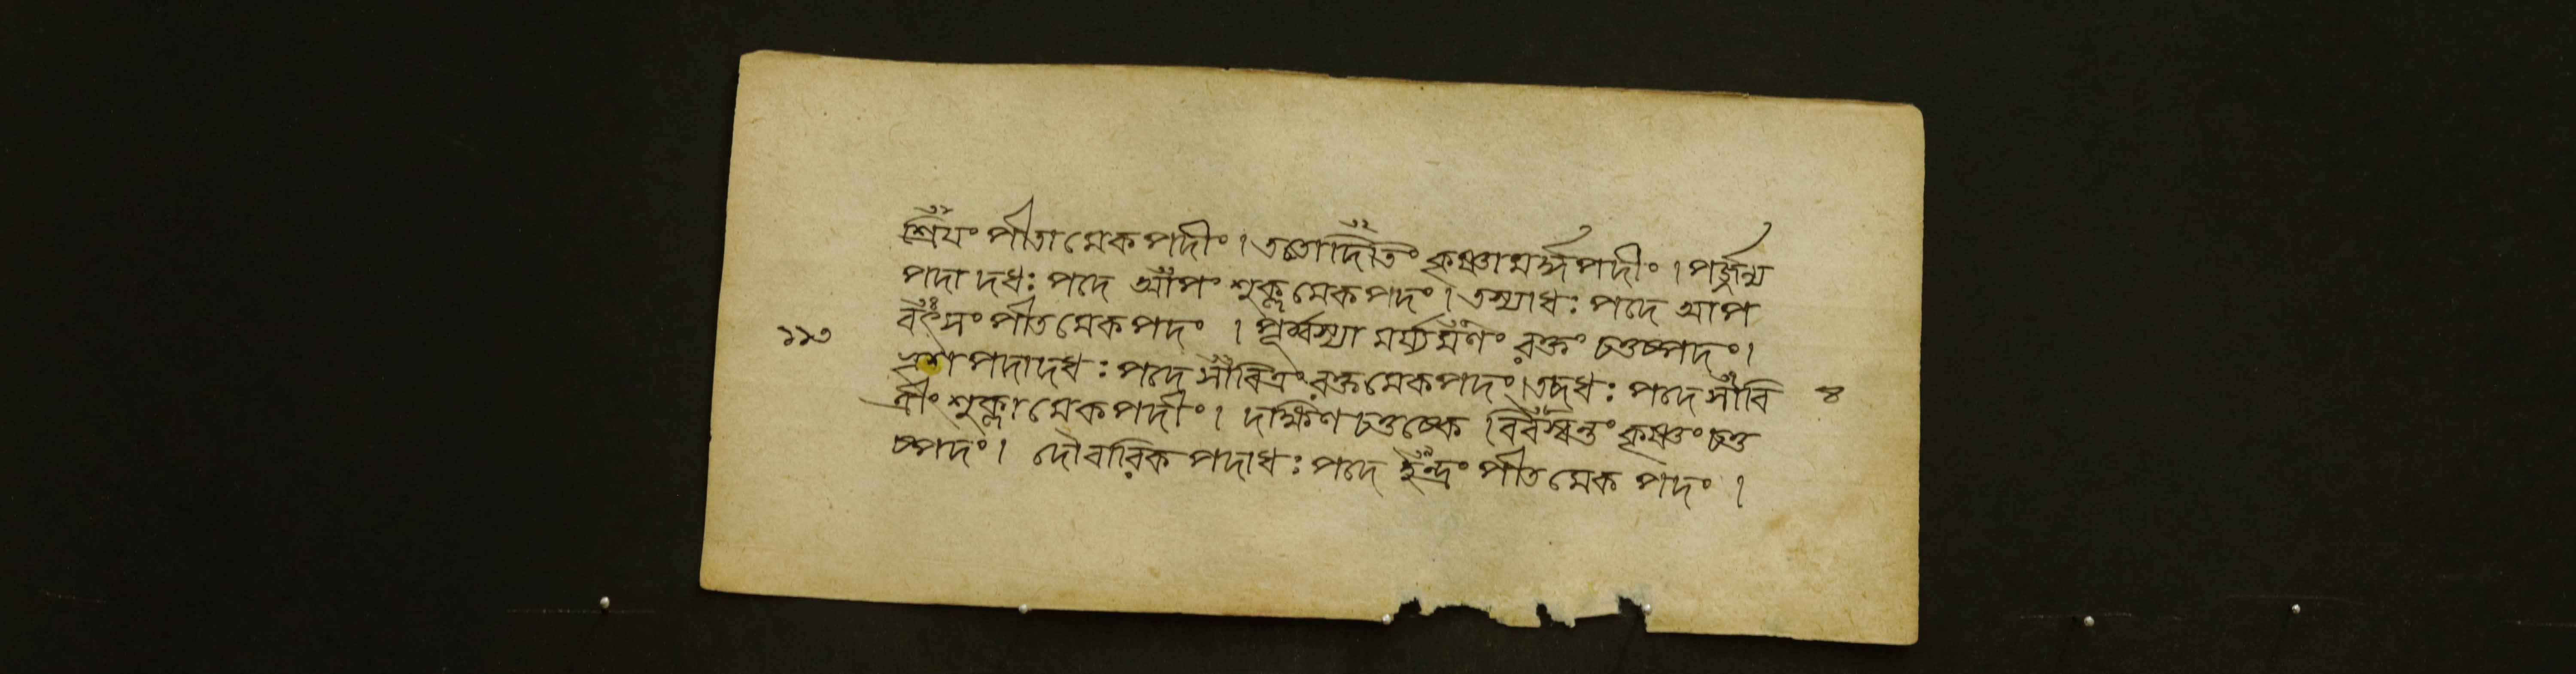 শ্রিয়ং পীতামেকপদীং । ততোদিতিং কৃষ্ণামর্দ্ধপদীং । পর্জ্জন্য
পদাদধঃ পদে আপং শুক্লমেকপদং । তস্যাধঃ পদে আপ
বৎসং পীতমেকপদং । পূর্ব্বস্যা মর্য্যমণং রক্তং চতুষ্পদং ।
ভৃশপদাদধঃ পদে সাবিত্রং রক্তমেকপদং । তদধঃ পদে সাবি
ত্রীং শুক্লামেকপদীং । দক্ষিণচতুষ্কে বিবস্বন্তং কৃষ্ণং চতু
ষ্পদং । দৌবারিকপদাধঃ পদে ইন্দ্রং পীতমেকপদং ।
১১৩
৪